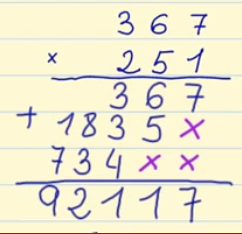 367
× 251
367
+ 1835×
734××
92117